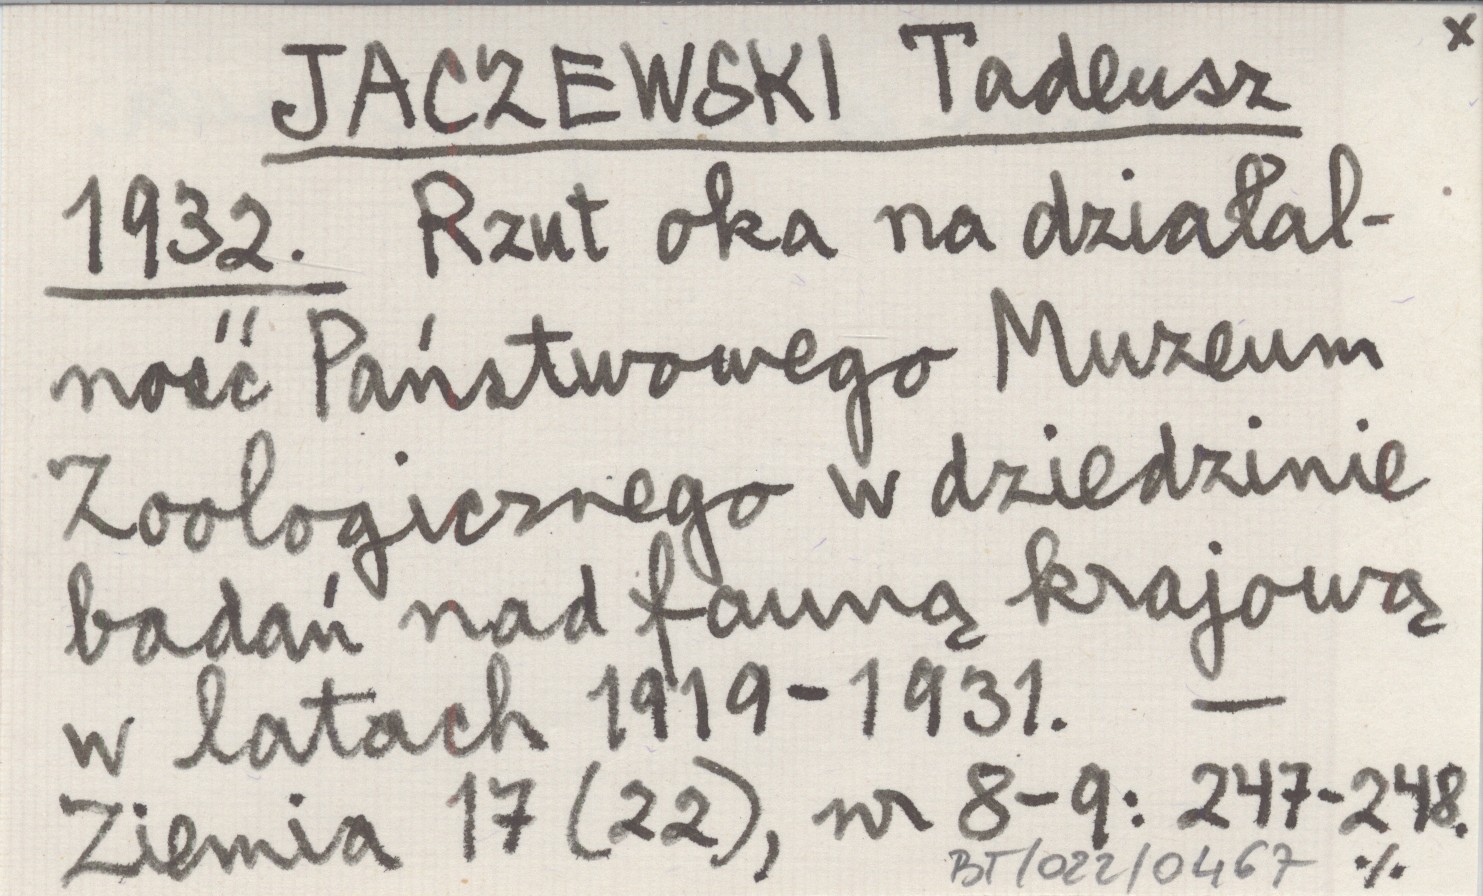 x
JACZEWSKI Tadeusz
1932. Rzut oka na działal-
ność Państwowego Muzeum
Zoologicznego w dziedzinie
badań nad fauną krajową
w latach 1919-1931. —
Ziemia 17 (22), nr 8-9: 247-248.
BT/022/0467 ·/.